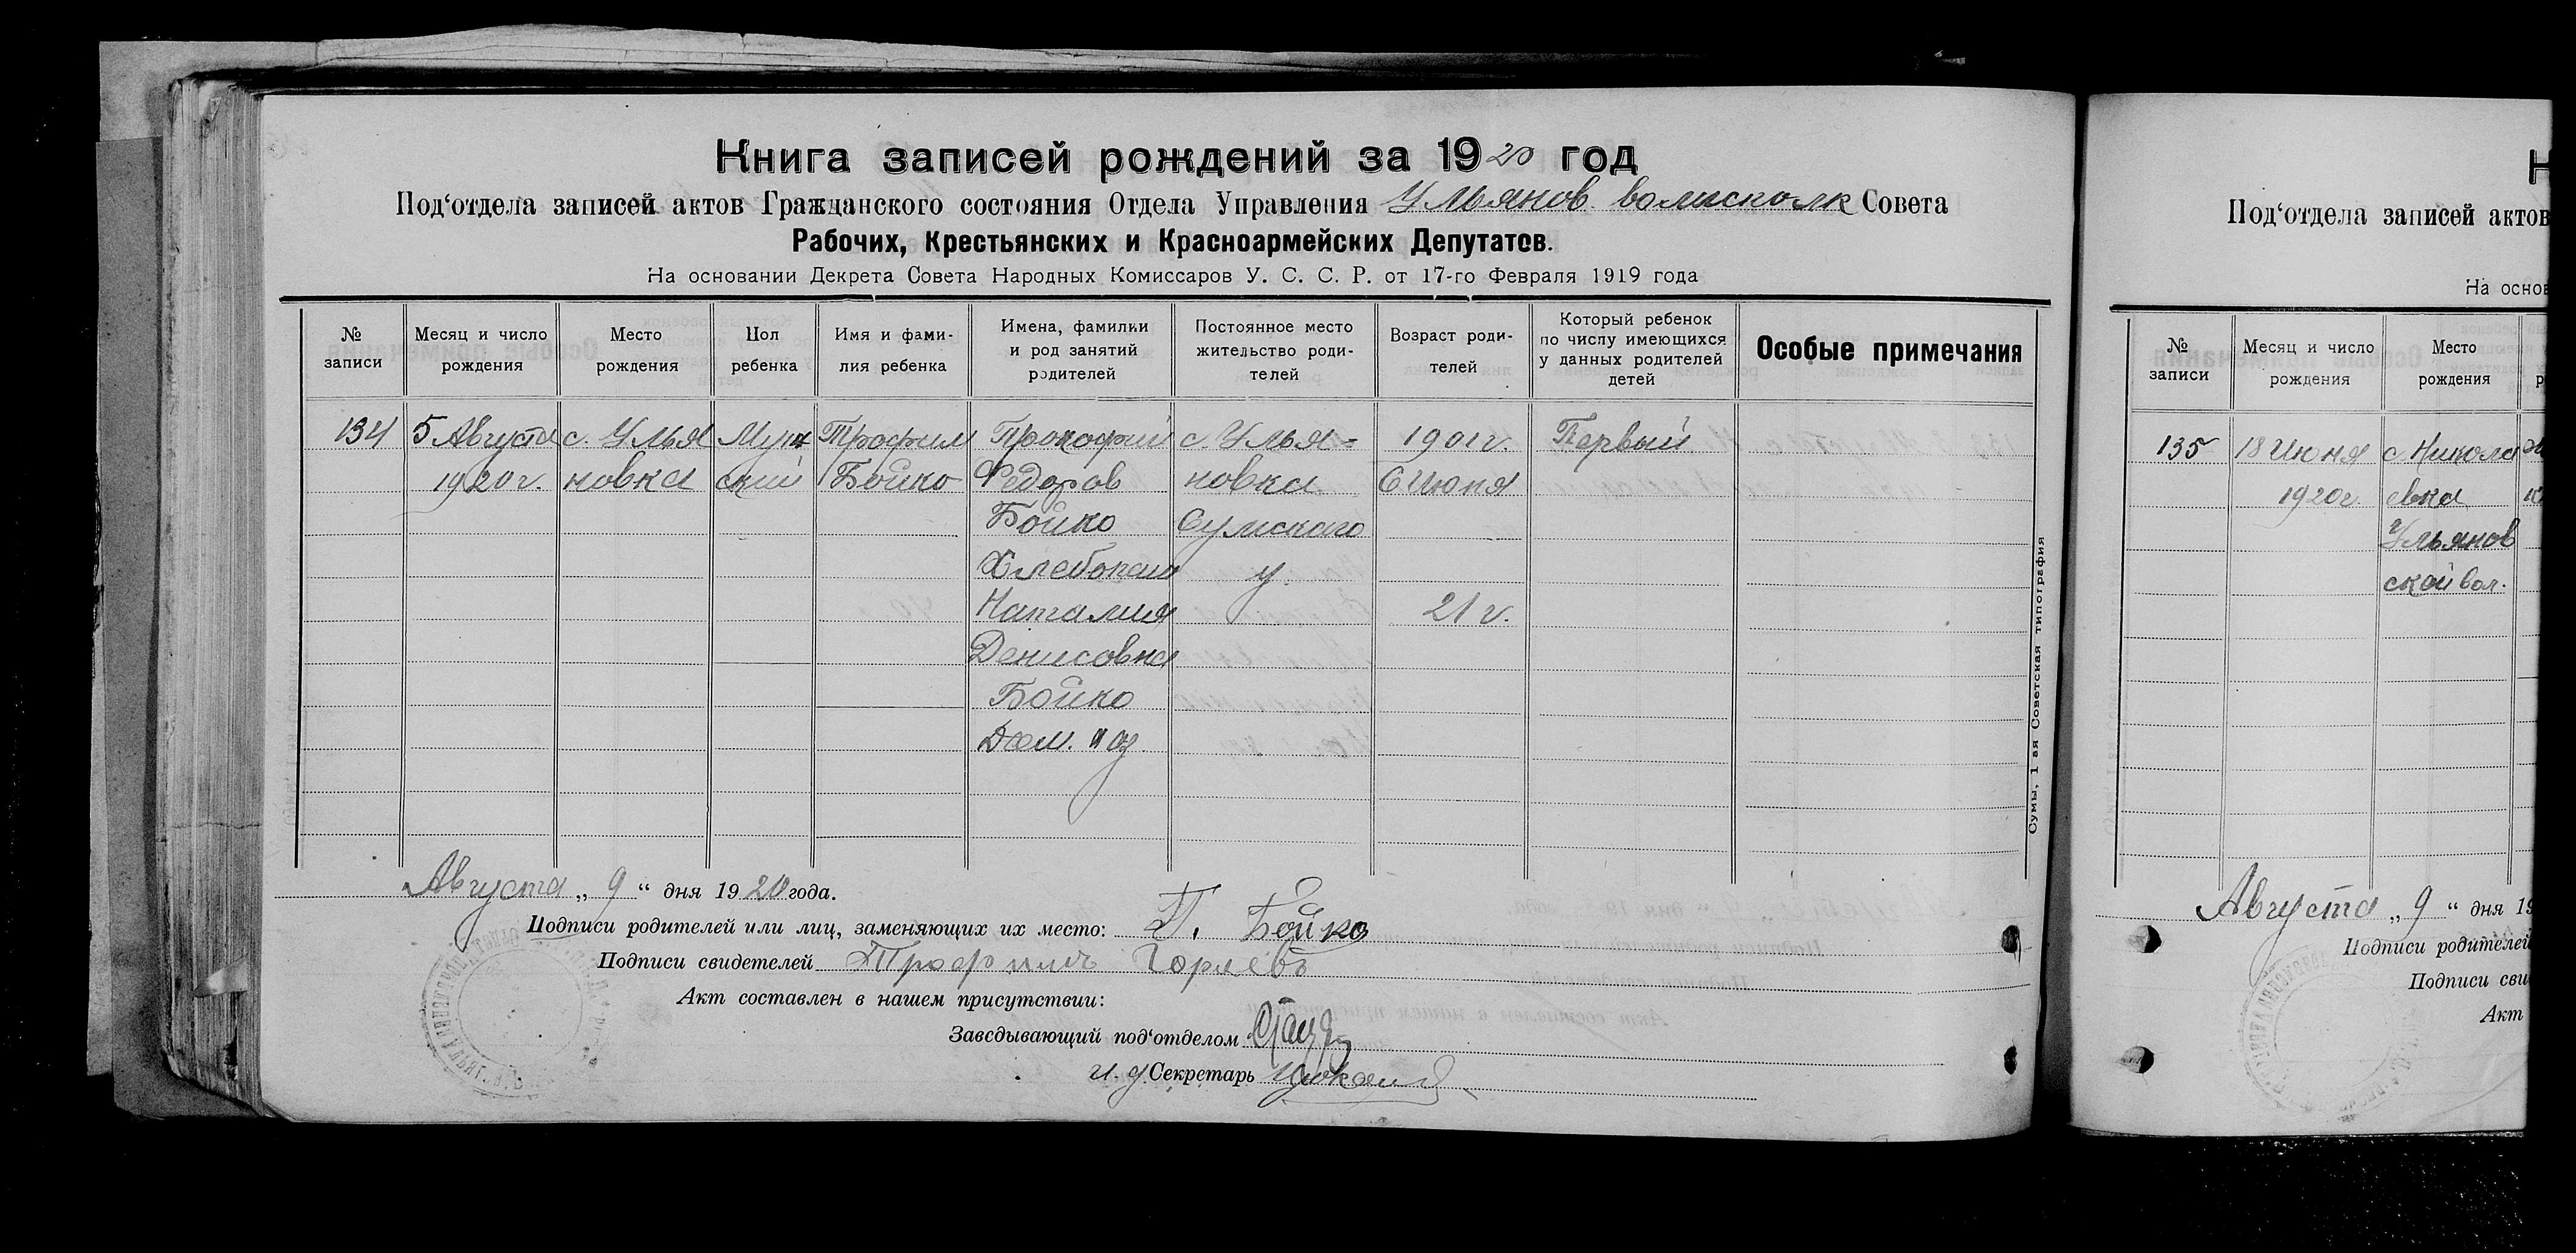 Книга записей рождений за 1920 год
Под‘отдела записей актов Гражданского состояния Отдела Управления Ульянов. волисполк Совета
Рабочих, Крестьянских и Красноармейских Депутатов.
На основании Декрета Совета Народных Комиссаров У. С. С. Р. от 17-го Февраля 1919 года
№ записи
Месяц и число рождения
Место рождения
Пол ребенка
Имя и фами- лия ребенка
Имена, фамилии и род занятий родителей
Постоянное место жительство роди- телей
Возраст роди- телей
Который ребенок по числу имеющихся у данных родителей детей
Особые примечания
134 5 Августа с. Улья Муж Трофим Прокофий с. Улья= 1901 г. Первый
1920 г. новка ский Бойко Федоров новка 6 Июня
Бойко Сумскаго
Хлебопаш у.
Наталия 21 г.
Денисовна
Бойко
Дом. хоз
Августа „ 9 “ дня 1920 года.
Подписи родителей или лиц, заменяющих их место: П. Бойко
Подписи свидетелей Трофимъ
Акт составлен в нашем присутствии:
Заведывающий под‘отделом
и. д Секретарь
Сумы, 1 ая Советская типография
Под‘отдела записей актов
На основ
№ записи
Месяц и число рождения
Место рождения
135 18 Июня с. Никола
1920 г. евка
Ульянов
ской вол.
Августа „ 9 “ дня 19
Подписи родителей
Подписи сви
Акт